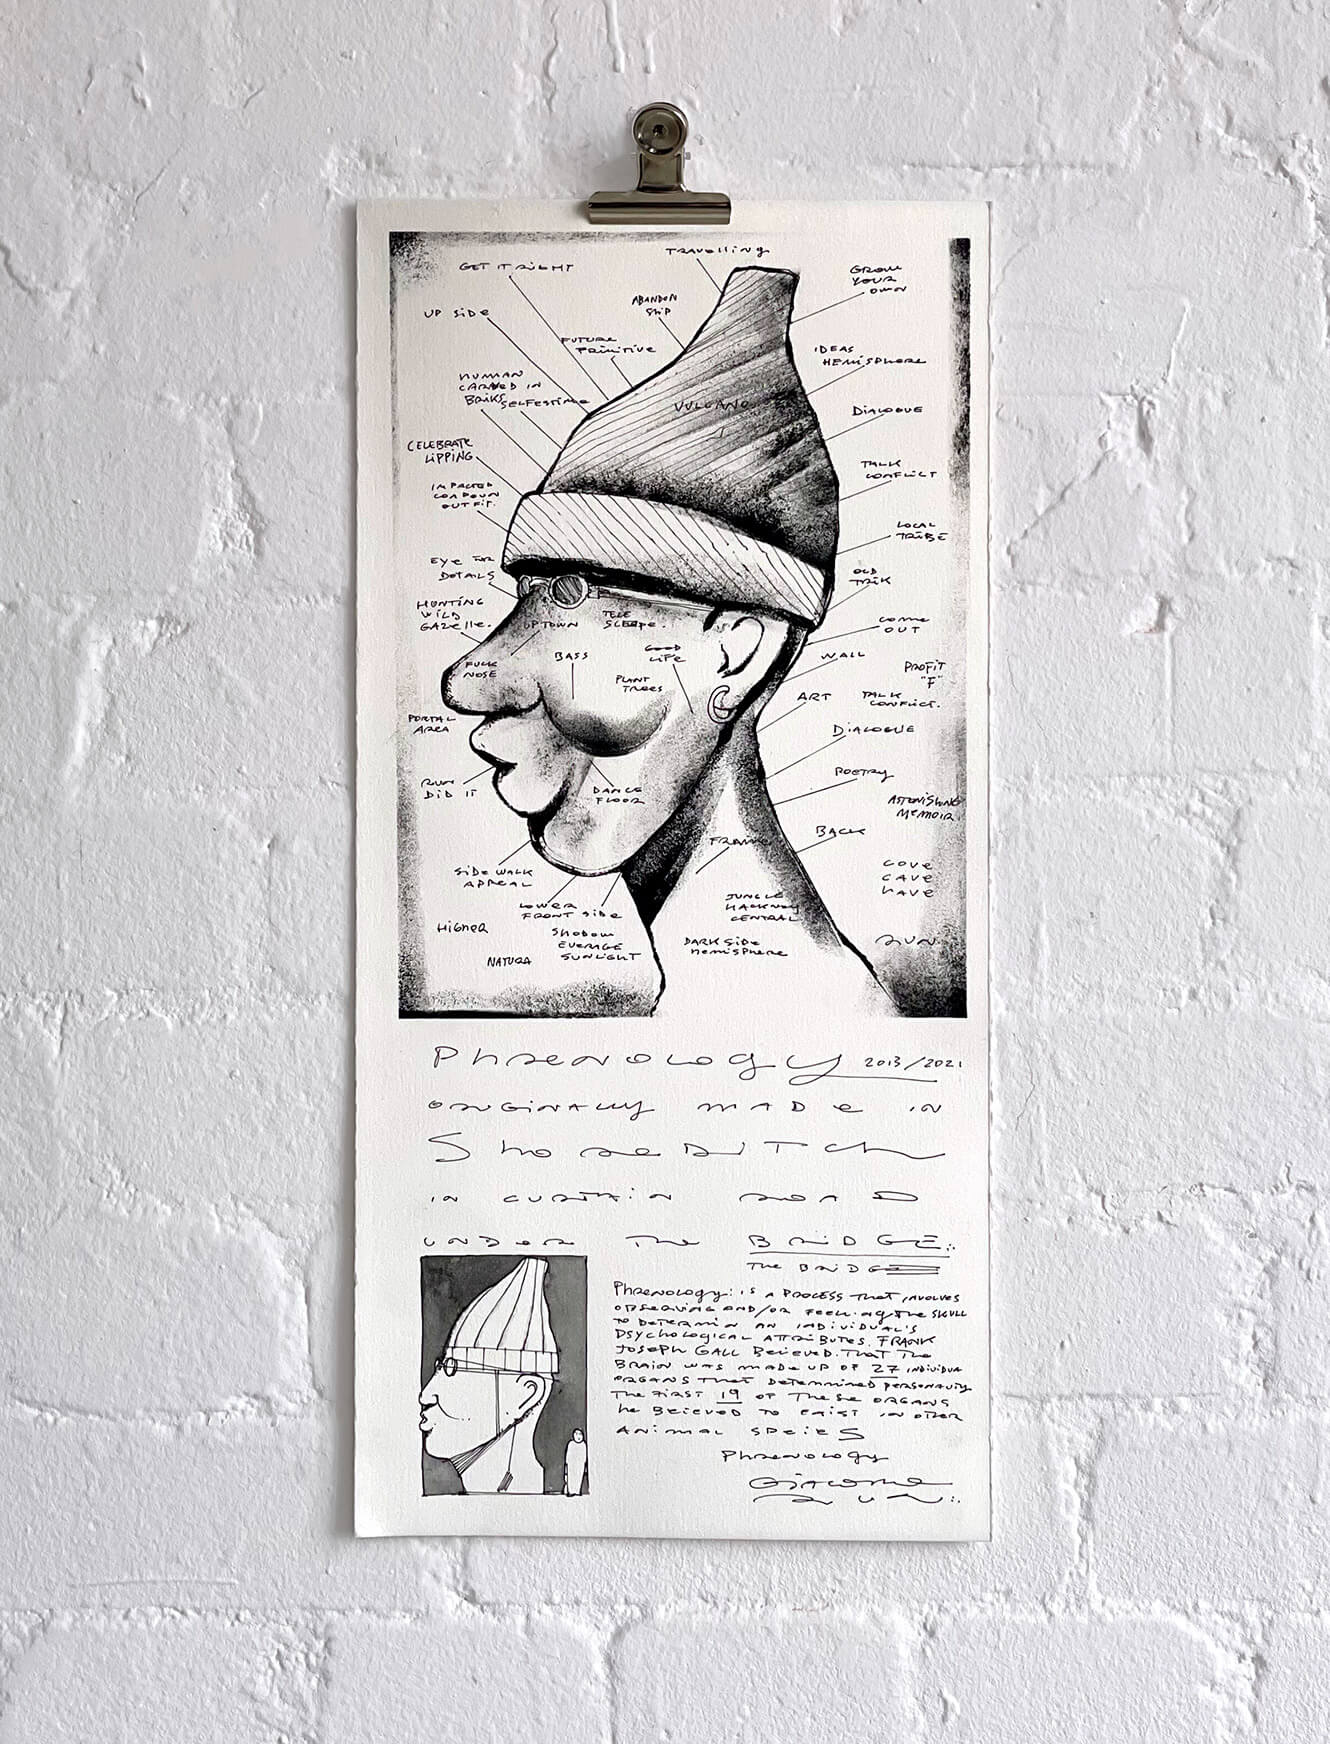 TRAVELLING
GET IT RIGHT
GROW
YOUR
OWN
ABANDON
SHIP
UP SIDE
FUTURE
PRIMITIVE
IDEAS
HEMISPHERE
HUMAN
CARVED IN
BRIKS
SELFESTIME
VULCANO
DIALOGUE
CELEBRATE
LIPPING
TALK
CONFLICT
IMPACTED
OUTFIT.
LOCAL
TRIBE
EYE FOR
DETAILS
OLD
TRIK
HUNTING
WILD
GAZELLE.
UPTOWN
TELE
COME
OUT
FUCK
NOSE
BASS
GOOD
LIFE
WALL
PROFIT
"F"
PLANT
TREES
ART
TALK
CONFLICT.
PORTAL
AREA
DIALOGUE
RUN
DID IT
DANCE
FLOOR
POETRY
ASTONISHING
MEMOIR.
BACK
FRANK
SIDE WALK
APPEAL
COVE
CAVE
HAVE
LOWER
FRONT SIDE
JUNGLE
HACKNEY
CENTRAL
HIGHER
SHODOW
EVERAGE
SUNLIGHT
NATURA
DARK SIDE
HEMISPHERE
RUN.
PHRENOLOGY 2013/2021
ORIGINALLY MADE IN
SHOREDITCH
IN CURTAIN ROAD
UNDER THE BRIDGE.:
THE BRIDGE
PHRENOLOGY: IS A PROCESS THAT INVOLVES
OBSERVING AND/OR FEELING THE SKULL
TO DETERMIN AN INDIVIDUAL'S
PSYCHOLOGICAL ATTRIBUTES. FRANK
JOSEPH GALL BELIEVED THAT THE
BRAIN WAS MADE UP OF 27 INDIVIDUA
ORGANS THAT DETERMINED PERSONALITY
THE FIRST 19 OF THESE ORGANS
HE BELIEVED TO EXIST IN OTHER
ANIMAL SPEIES
PHRENOLOGY
GIACOMO
RUN.: